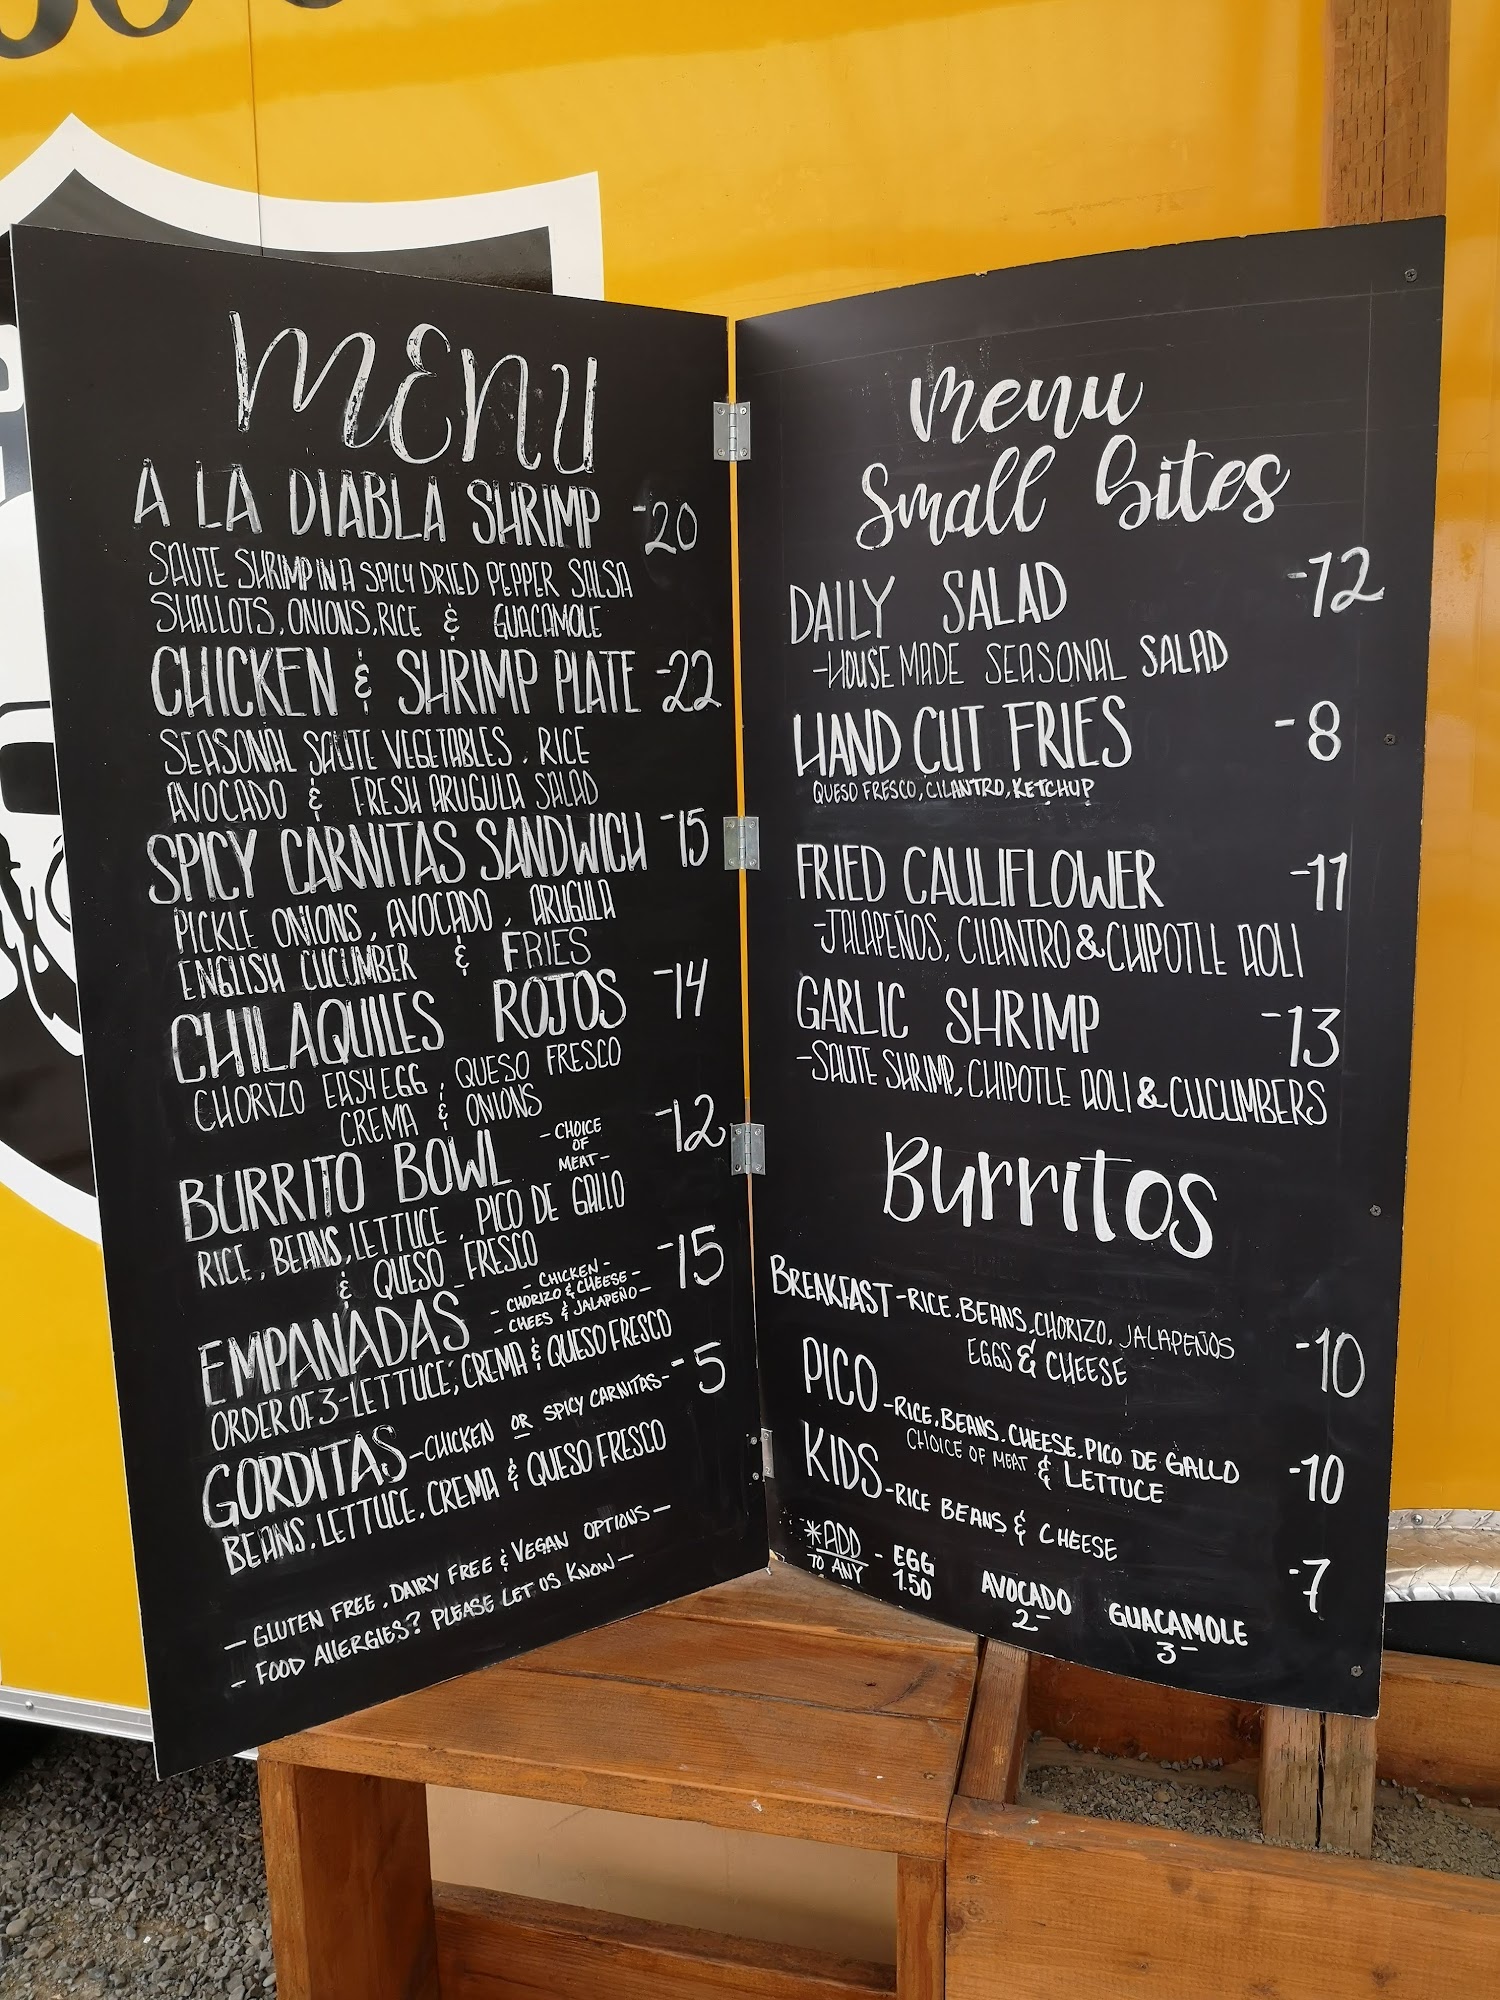 MENU
A LA DIABLA SHRIMP -20
SAUTE SHRIMP IN A SPICY DRIED PEPPER SALSA
SHALLOTS, ONIONS, RICE & GUACAMOLE
CHICKEN & SHRIMP PLATE -22
SEASONAL SAUTE VEGETABLES, RICE
AVOCADO & FRESH ARUGULA SALAD
SPICY CARNITAS SANDWICH -15
PICKLE ONIONS, AVOCADO, ARUGULA
ENGLISH CUCUMBER & FRIES
CHILAQUILES ROJOS -14
CHORIZO EASY EGG, QUESO FRESCO
CREMA & ONIONS
BURRITO BOWL -CHOICE OF MEAT- -12
RICE, BEANS, LETTUCE, PICO DE GALLO
& QUESO FRESCO
EMPANADAS -CHICKEN- -15
-CHORIZO & CHEESE-
-CHEES & JALAPEÑO-
ORDER OF 3-LETTUCE, CREMA & QUESO FRESCO
GORDITAS -CHICKEN OR SPICY CARNITAS- -5
BEANS, LETTUCE, CREMA & QUESO FRESCO
- GLUTEN FREE, DAIRY FREE & VEGAN OPTIONS -
- FOOD ALLERGIES? PLEASE LET US KNOW -
Menu
Small Bites
DAILY SALAD -12
-HOUSE MADE SEASONAL SALAD
HAND CUT FRIES -8
QUESO FRESCO, CILANTRO, KETCHUP
FRIED CAULIFLOWER -11
-JALAPEÑOS, CILANTRO & CHIPOTLE AOLI
GARLIC SHRIMP -13
-SAUTE SHRIMP, CHIPOTLE AOLI & CUCUMBERS
Burritos
BREAKFAST -RICE, BEANS, CHORIZO, JALAPEÑOS -10
EGGS & CHEESE
PICO -RICE, BEANS, CHEESE, PICO DE GALLO -10
CHOICE OF MEAT & LETTUCE
KIDS -RICE BEANS & CHEESE -7
*ADD - EGG AVOCADO GUACAMOLE
TO ANY 1.50 2- 3-